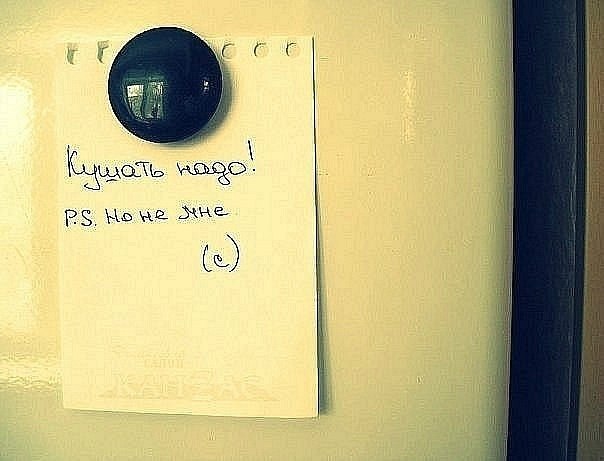 Кушать надо!
P.S. Но не мне
(с)
КАНЗАС